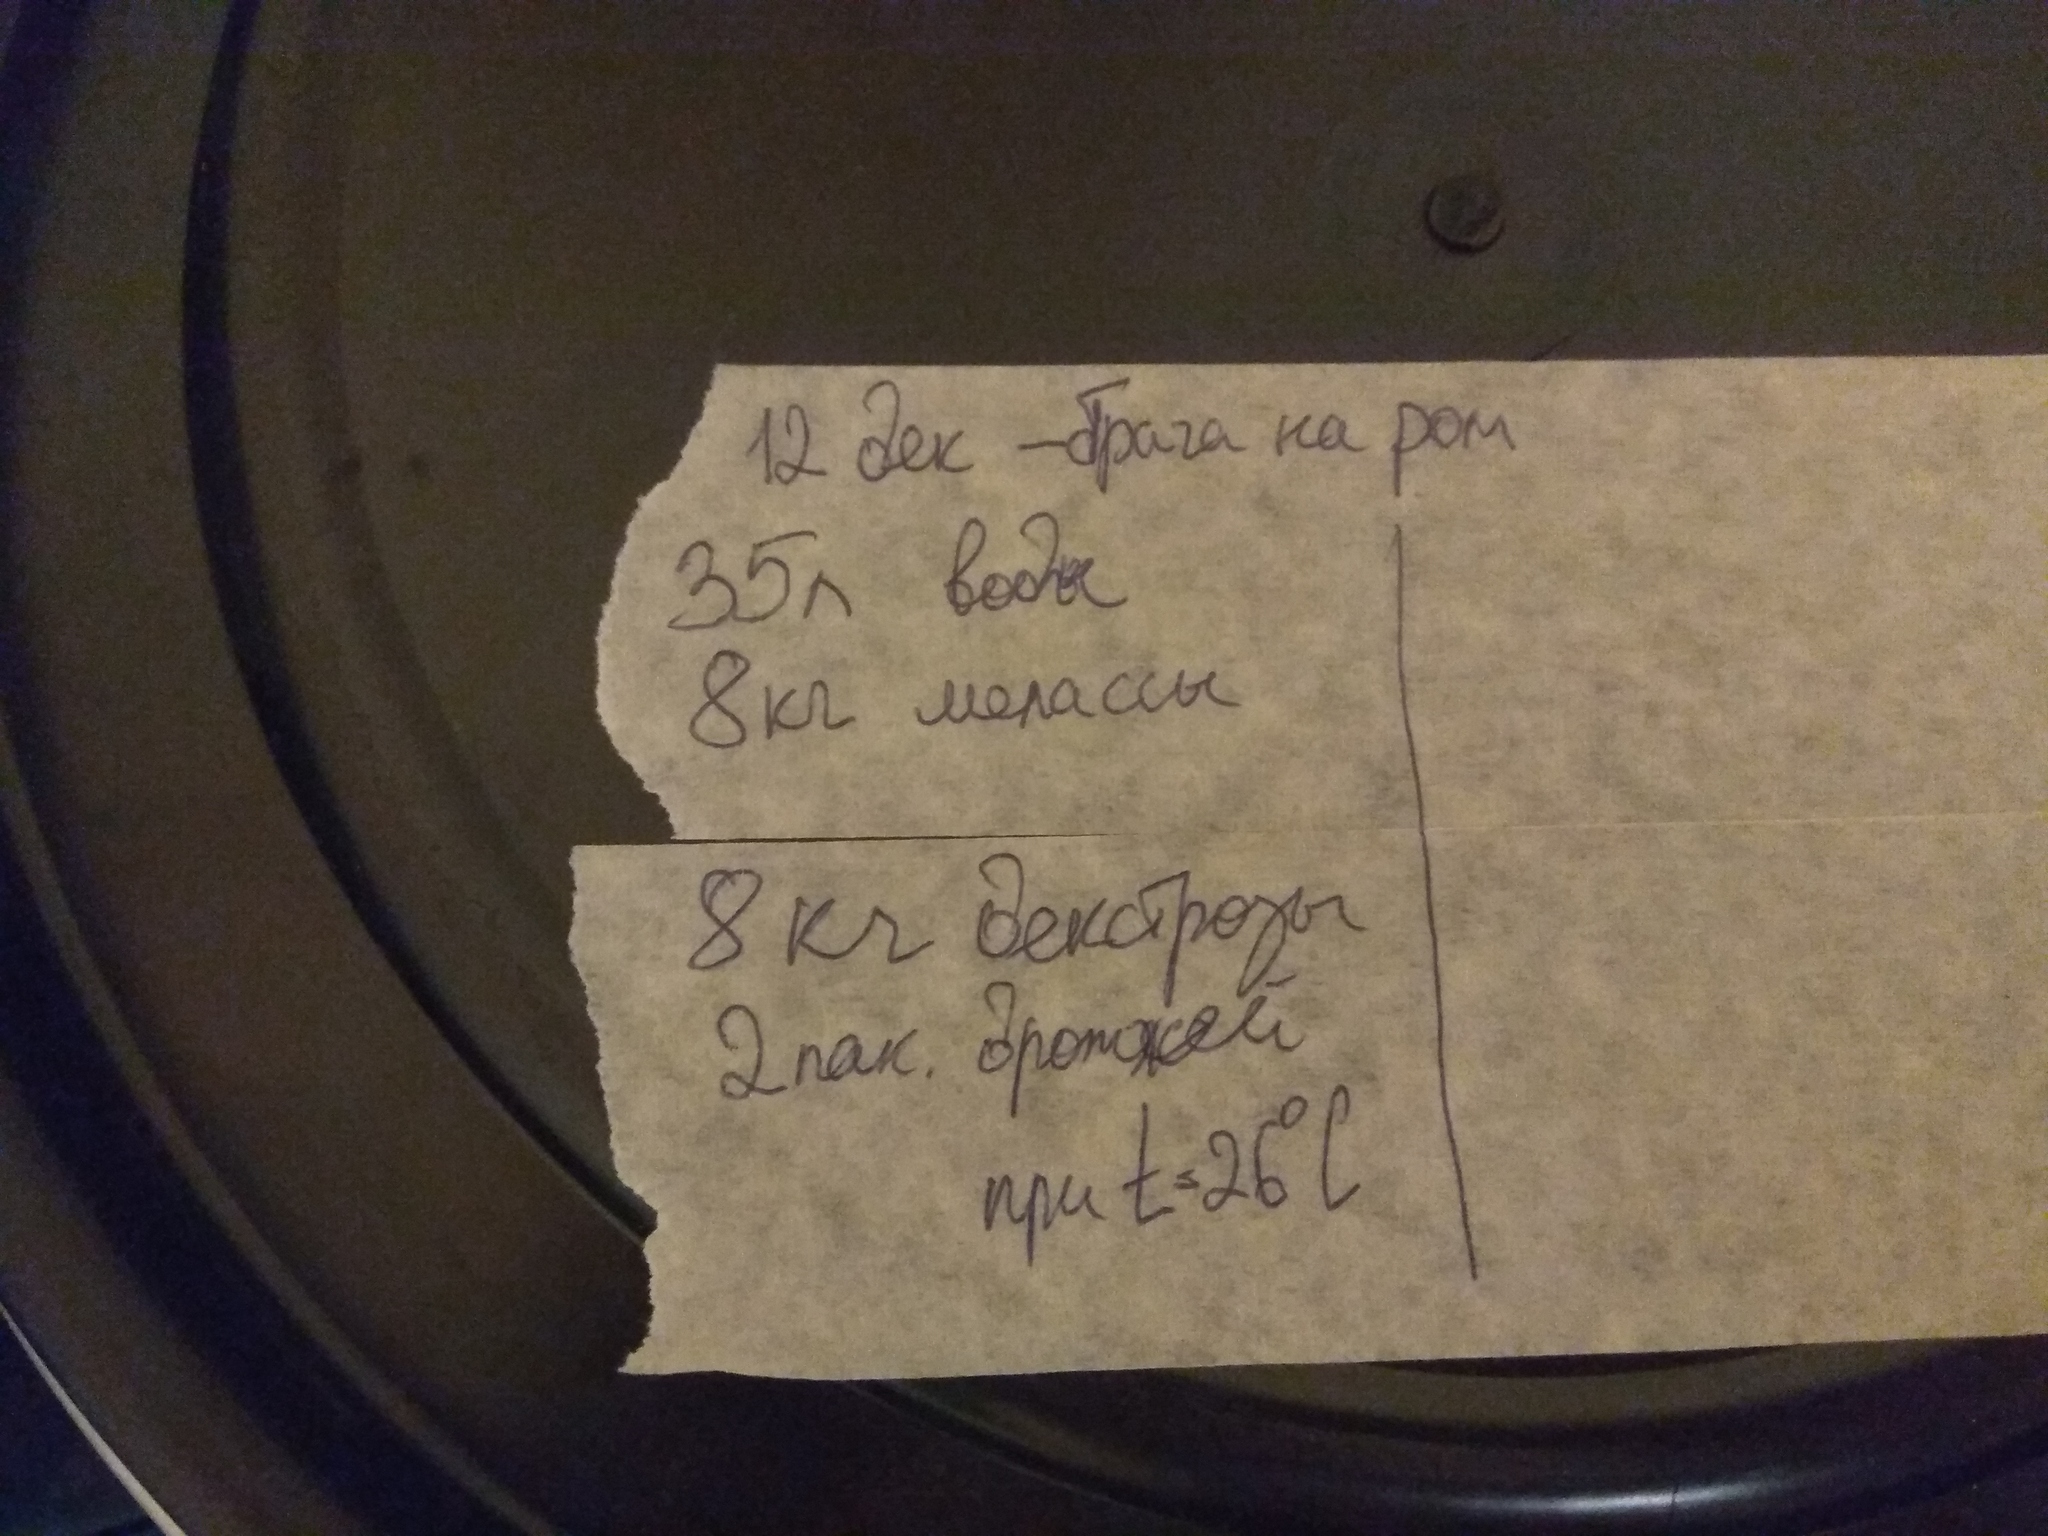 12 дек - брага на ром
35л воды
8кг мелассы
8 кг декстрозы
2 пак. дрожжей
при t=26°C